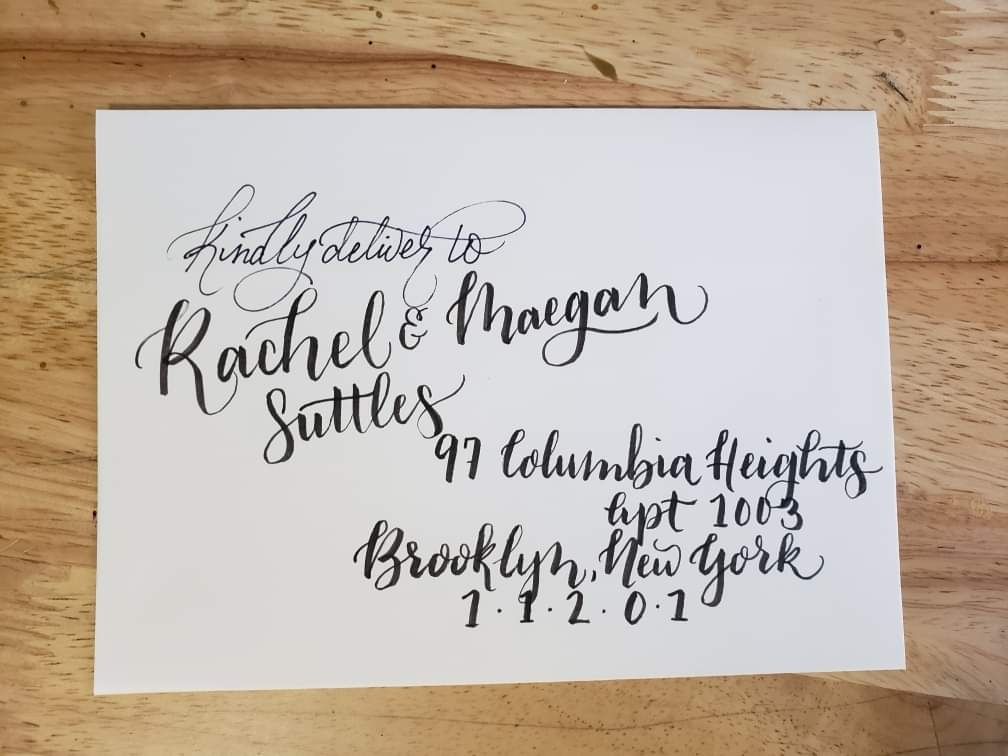 Kindly deliver to
Rachel & Maegan
Suttles
97 Columbia Heights
Apt 1003
Brooklyn, New York
1·1·2·0·1